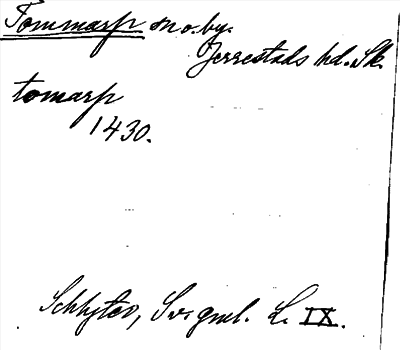 Tommarp sno.by.
Jerrestads hd. Sk.
tomarp
1430.
Schlyter, Sv. gml. L. IX.